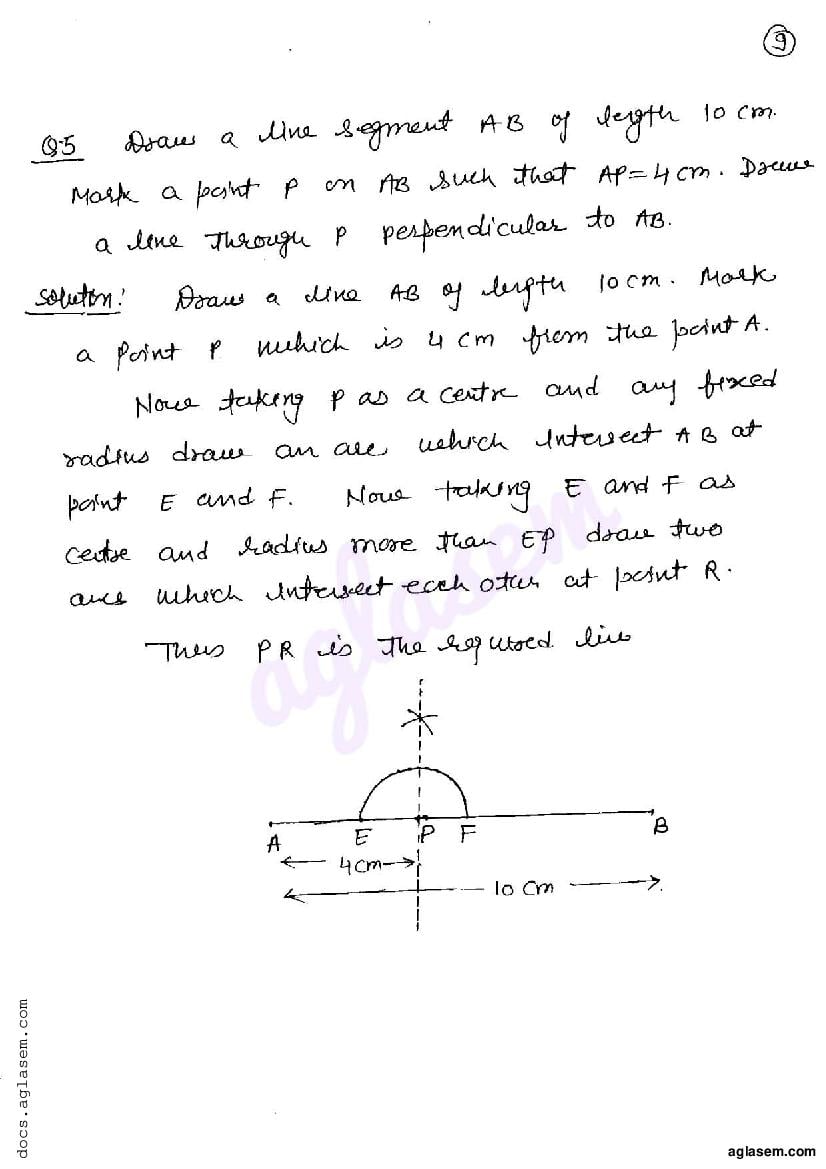 9
Q5 Draw a line segment AB of length 10 cm.
Mark a point P on AB such that AP = 4 cm. Draw
a line through P perpendicular to AB.
Solution: Draw a line AB of length 10 cm. Mark
a point P which is 4 cm from the point A.
Now taking P as a centre and any fixed
radius draw an arc which intersect AB at
point E and F. Now taking E and F as
centre and radius more than EP draw two
arcs which intersect each other at point R.
Thus PR is the required line
aglasem
A E P F B
4cm
10 cm
docs.aglasem.com
aglasem.com